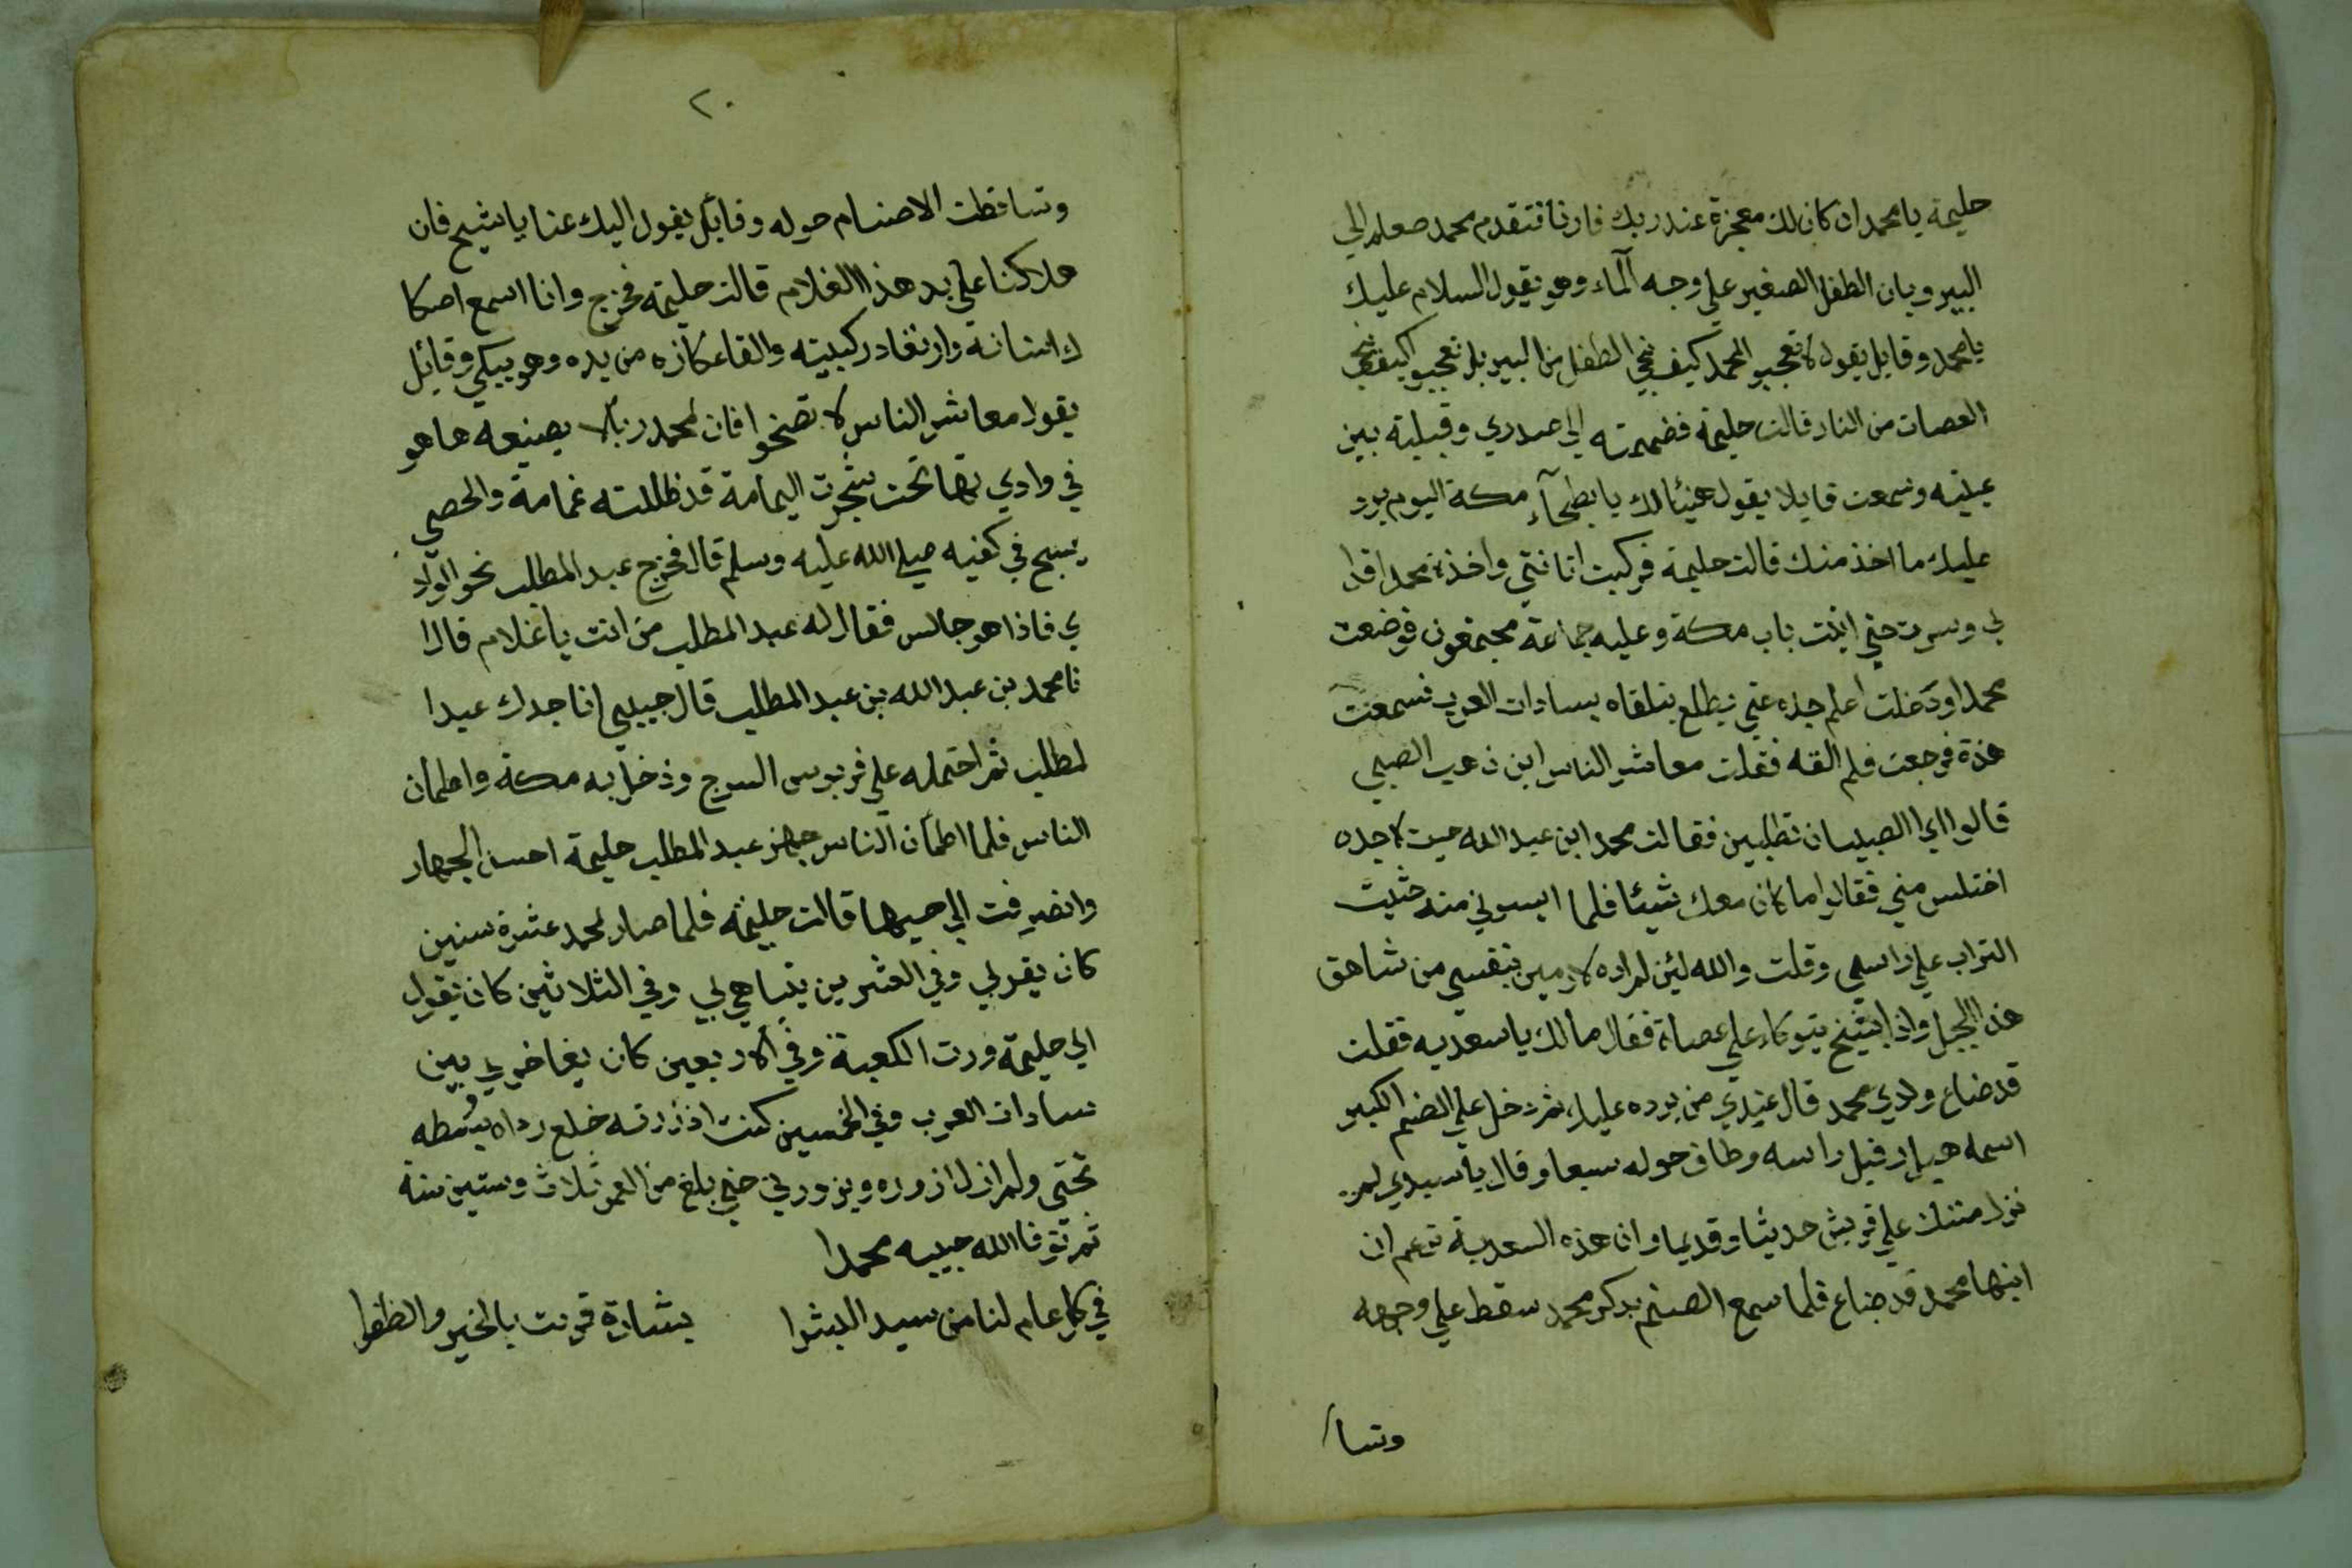 حليمة يا محمد ان كان لك معجزة عند ربك فارنا فتقدم محمد صعلم الي
البير وبان الطفل الصغير علي وجه الماء وهو يقول السلام عليك
يا محمد وقايل يقول لا تعجبو لمحمد كيف نجي الطفل من البير بل تعجبو كيف نجي
العصات من النار قالت حليمة فضممته الي صدري وقبلته بين
عينيه وسمعت قايلا يقول هنيئا لك يا بطحاء مكة اليوم يرد
عليك ما اخذ منك قالت حليمة فركبت اتانتي واخذة محمدا قدا
لي وسرت حتي اتيت باب مكة وعليه جماعة مجتمعون فوضعت
محمدا ودخلت اعلم جده حتي يطلع يتلقاه بسادات العرب فسمعت
هذة فرجعت فلم القه فقلت معاشر الناس اين ذهب الصبي
قالوا اي الصبيان تطلبين فقالت محمد ابن عبد الله جيت لاجده
اختلس مني فقالوا ما كان معك شيئا فلما ايسوني منه حثيت
التراب علي راسي وقلت والله لئن لم اراه لارمين بنفسي من شاهق
هذا الجبل واذا بشيخ يتوكاء علي عصاة فقال مالك يا سعديه فقلت
قد ضاع ولدي محمد قال عندي من يرده عليك ثم دخل علي الصنم الكبير
اسمه هبل فقبل راسه وطاف حوله سبعا وقال يا سيدي لم
نزل منتك علي قريش حديثا وقديما وان هذه السعدية تزعم ان
ابنها محمد قد ضاع فلما سمع الصنم بدكر محمد سقط علي وجهه
وتسا
٢٠
وتساقطت الاصنام حوله وقائل يقول اليك عنا يا شيخ فان
هلاكنا علي يد هذا الغلام قالت حليمة فخرج وانا اسمع اصكا
ك اسنانه وارتعاد ركبيته والقا عكازه من يده وهو يبكي وقائل
يقول معاشر الناس لا تضخوا فان لمحمد ربا لا يضيعه ها هو
في وادي تهما تحت شجرت اليمامة قد ظللته غمامة والحصي
يسبح في كفيه صلي الله عليه وسلم قال فخرج عبد المطلب نحو الواد
ي فاذا هو جالس فقال له عبد المطلب من انت يا غلام قال ا
نا محمد بن عبد الله بن عبد المطلب قال حبيبي انا جدك عبد ا
لمطلب ثم احتمله علي قربوس السرج ودخل به مكة واطمأن
الناس فلما اطمأن الناس جهز عبد المطلب حليمة احسن الجهاز
وانصرفت الي حيها قالت حليمة فلما صار لمحمد عشرة سنين
كان يقر لي وفي العشرين يتباهي بي وفي الثلاثين كان يقول
الي حليمة ورت الكعبة وفي الاربعين كان يفاخر بي بين
سادات العرب وفي الخمسين كنت اذ زرته خلع رداه يبسطه
تحتي ولم ازل ازوره ويزورني حتي بلغ من العمر ثلاث وستين سنة
ثم توفا الله حبيبه محمدا
في كل عام لنا من سيد البشرا بشارة قرنت بالخير والظفرا